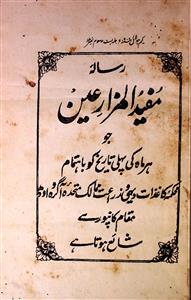 رسالہ
مفید المزارعین
جو
ہر ماہ کی پہلی تاریخ کو باہتمام
محکمہ کاغذات دیہی و زراعت ممالک متحدہ آگرہ و اودھ
مقام کانپور سے
شائع ہوتا ہے